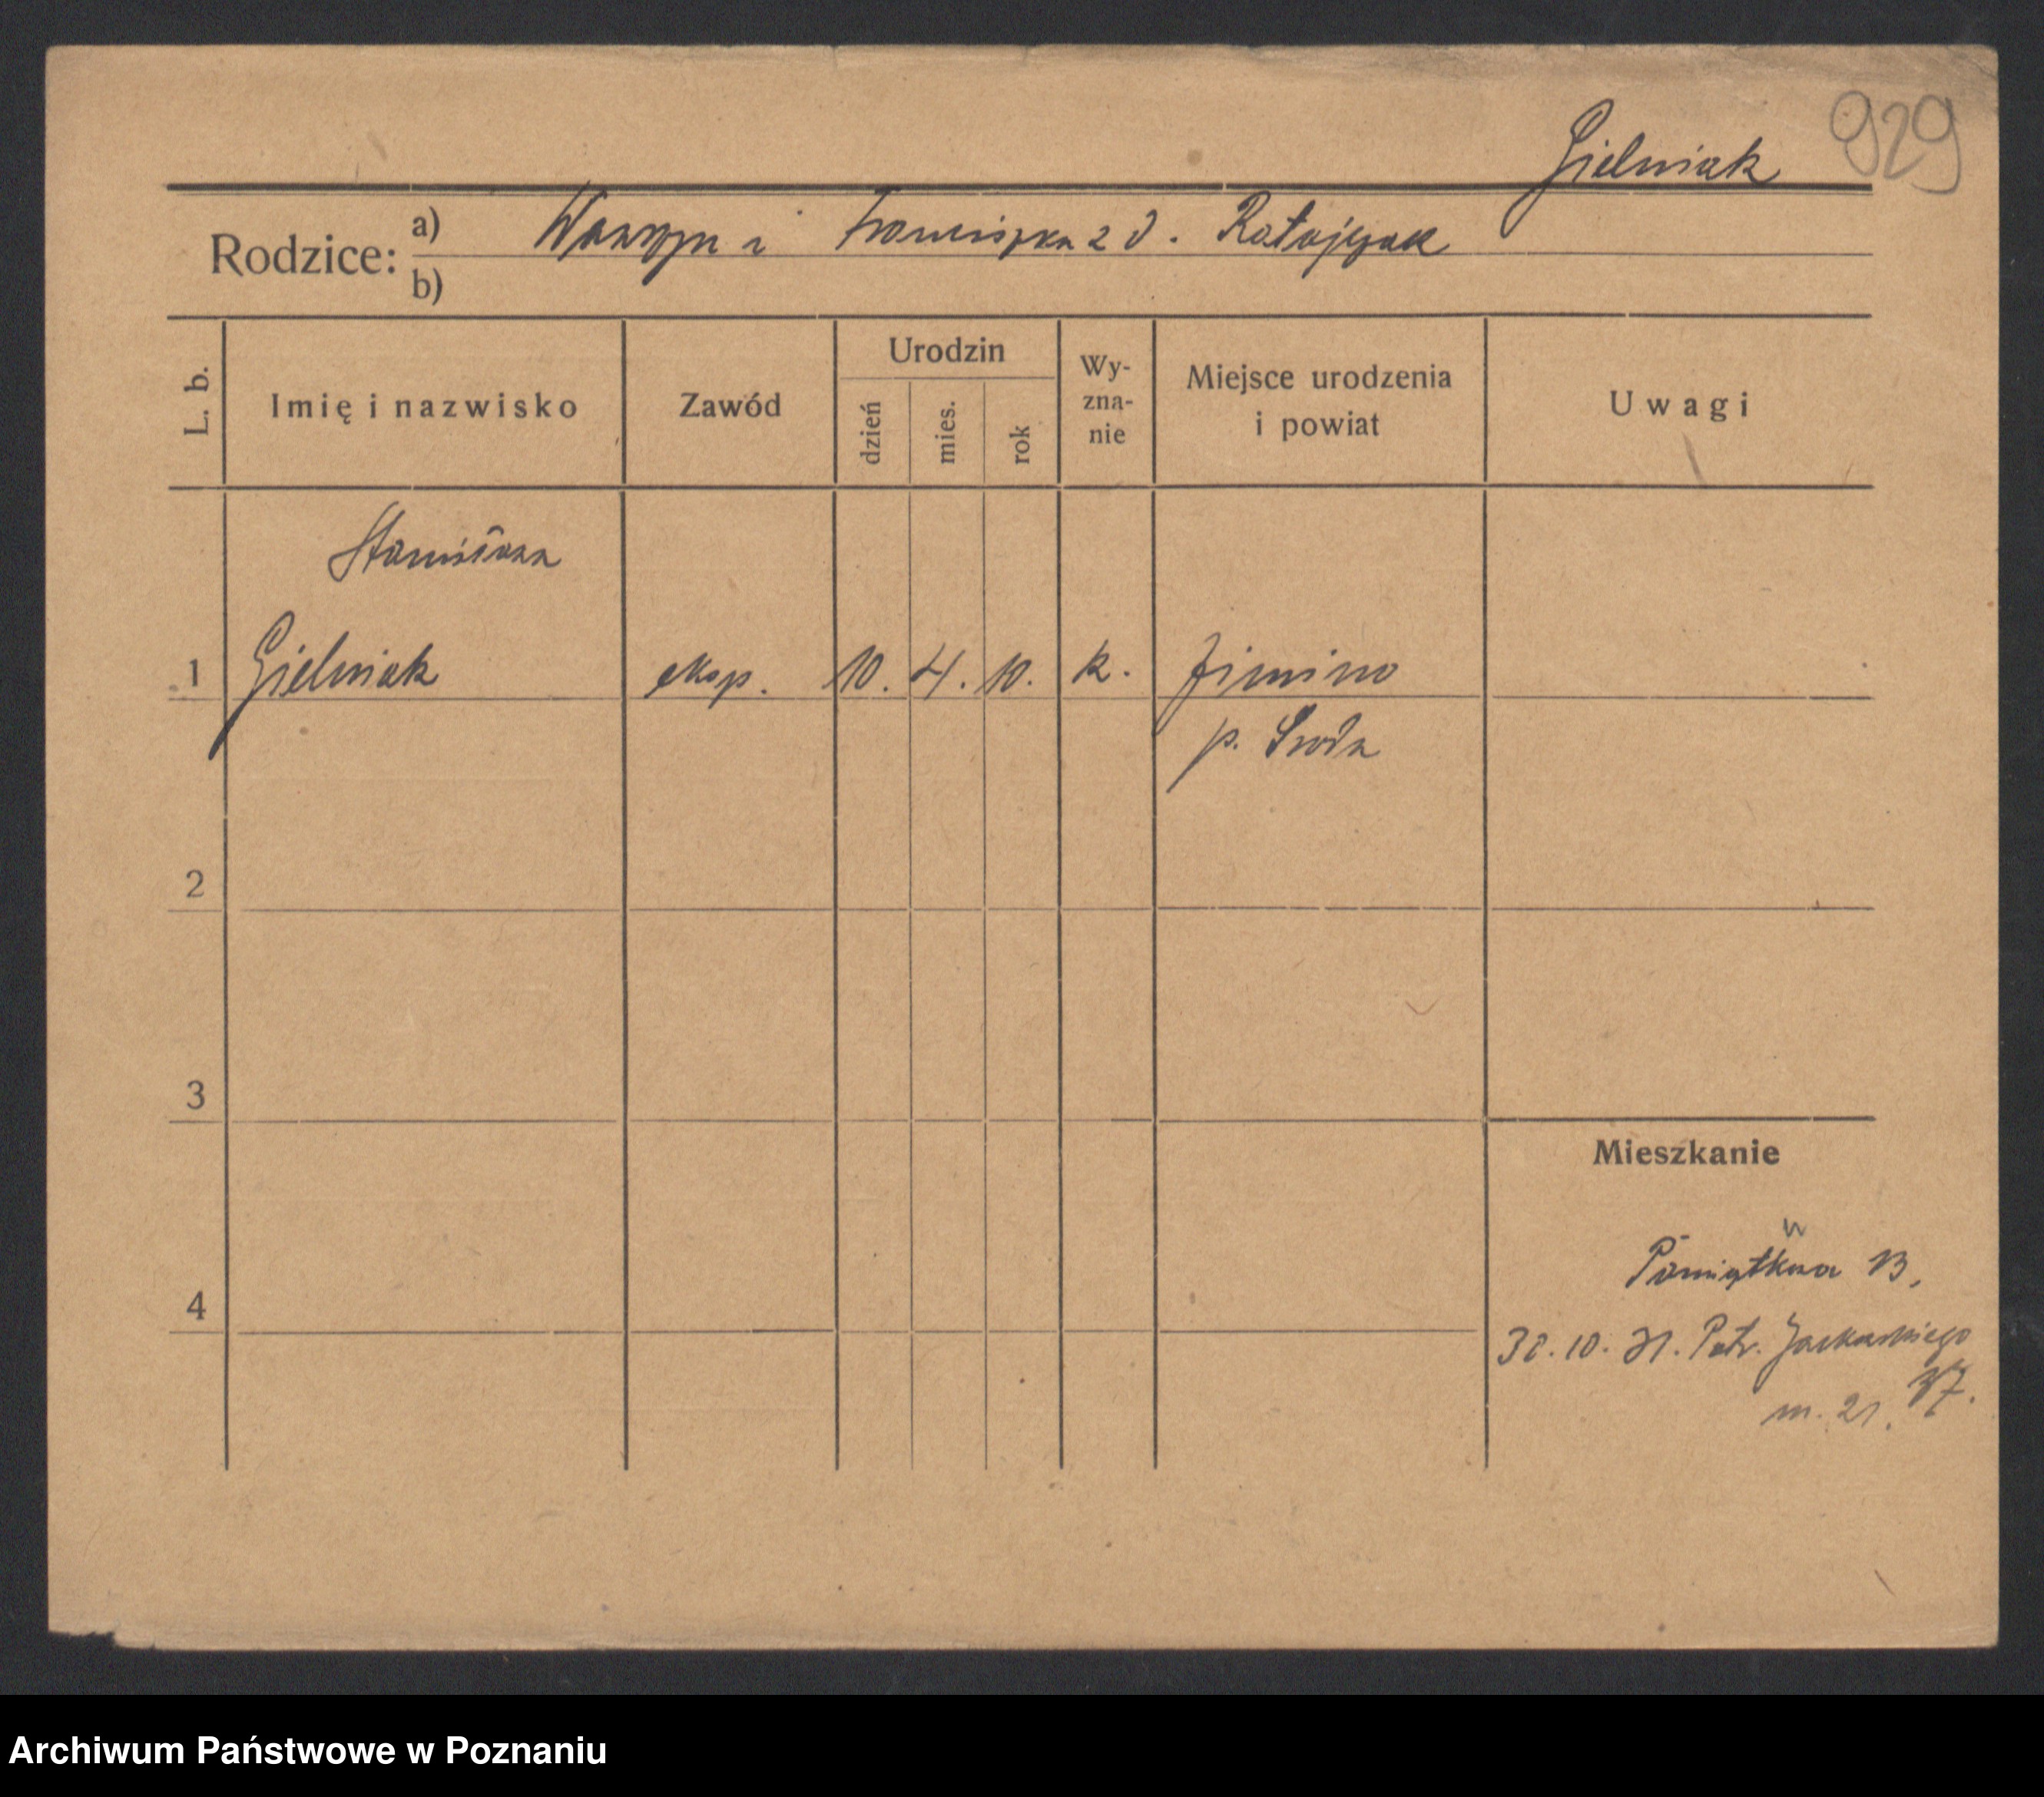 929
Gielniak
Rodzice: a) Wawrzyn i Franciszka z d. Ratajczak
b)
L. b.
Imię i nazwisko
Zawód
Urodzin
dzień
mies.
rok
Wy-
zna-
nie
Miejsce urodzenia
i powiat
Uwagi
Stanisława
1 Gielniak eksp. 10. 4. 10. k. Zimino
p. Środa
2
3
Mieszkanie
Pamiątkowa 13,
4
30. 10. 31. Patr. Jackowskiego
37.
m. 21.
Archiwum Państwowe w Poznaniu